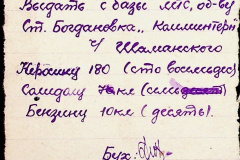 Выдать с базы МТС, об-ву
Ст. Богдановка „Каминтерн"
ч/ Шаманского
Керосину 180 (сто восемьдес)
Солидолу 7 кл (семь
Бензину 10 кл (десять).
Бух: